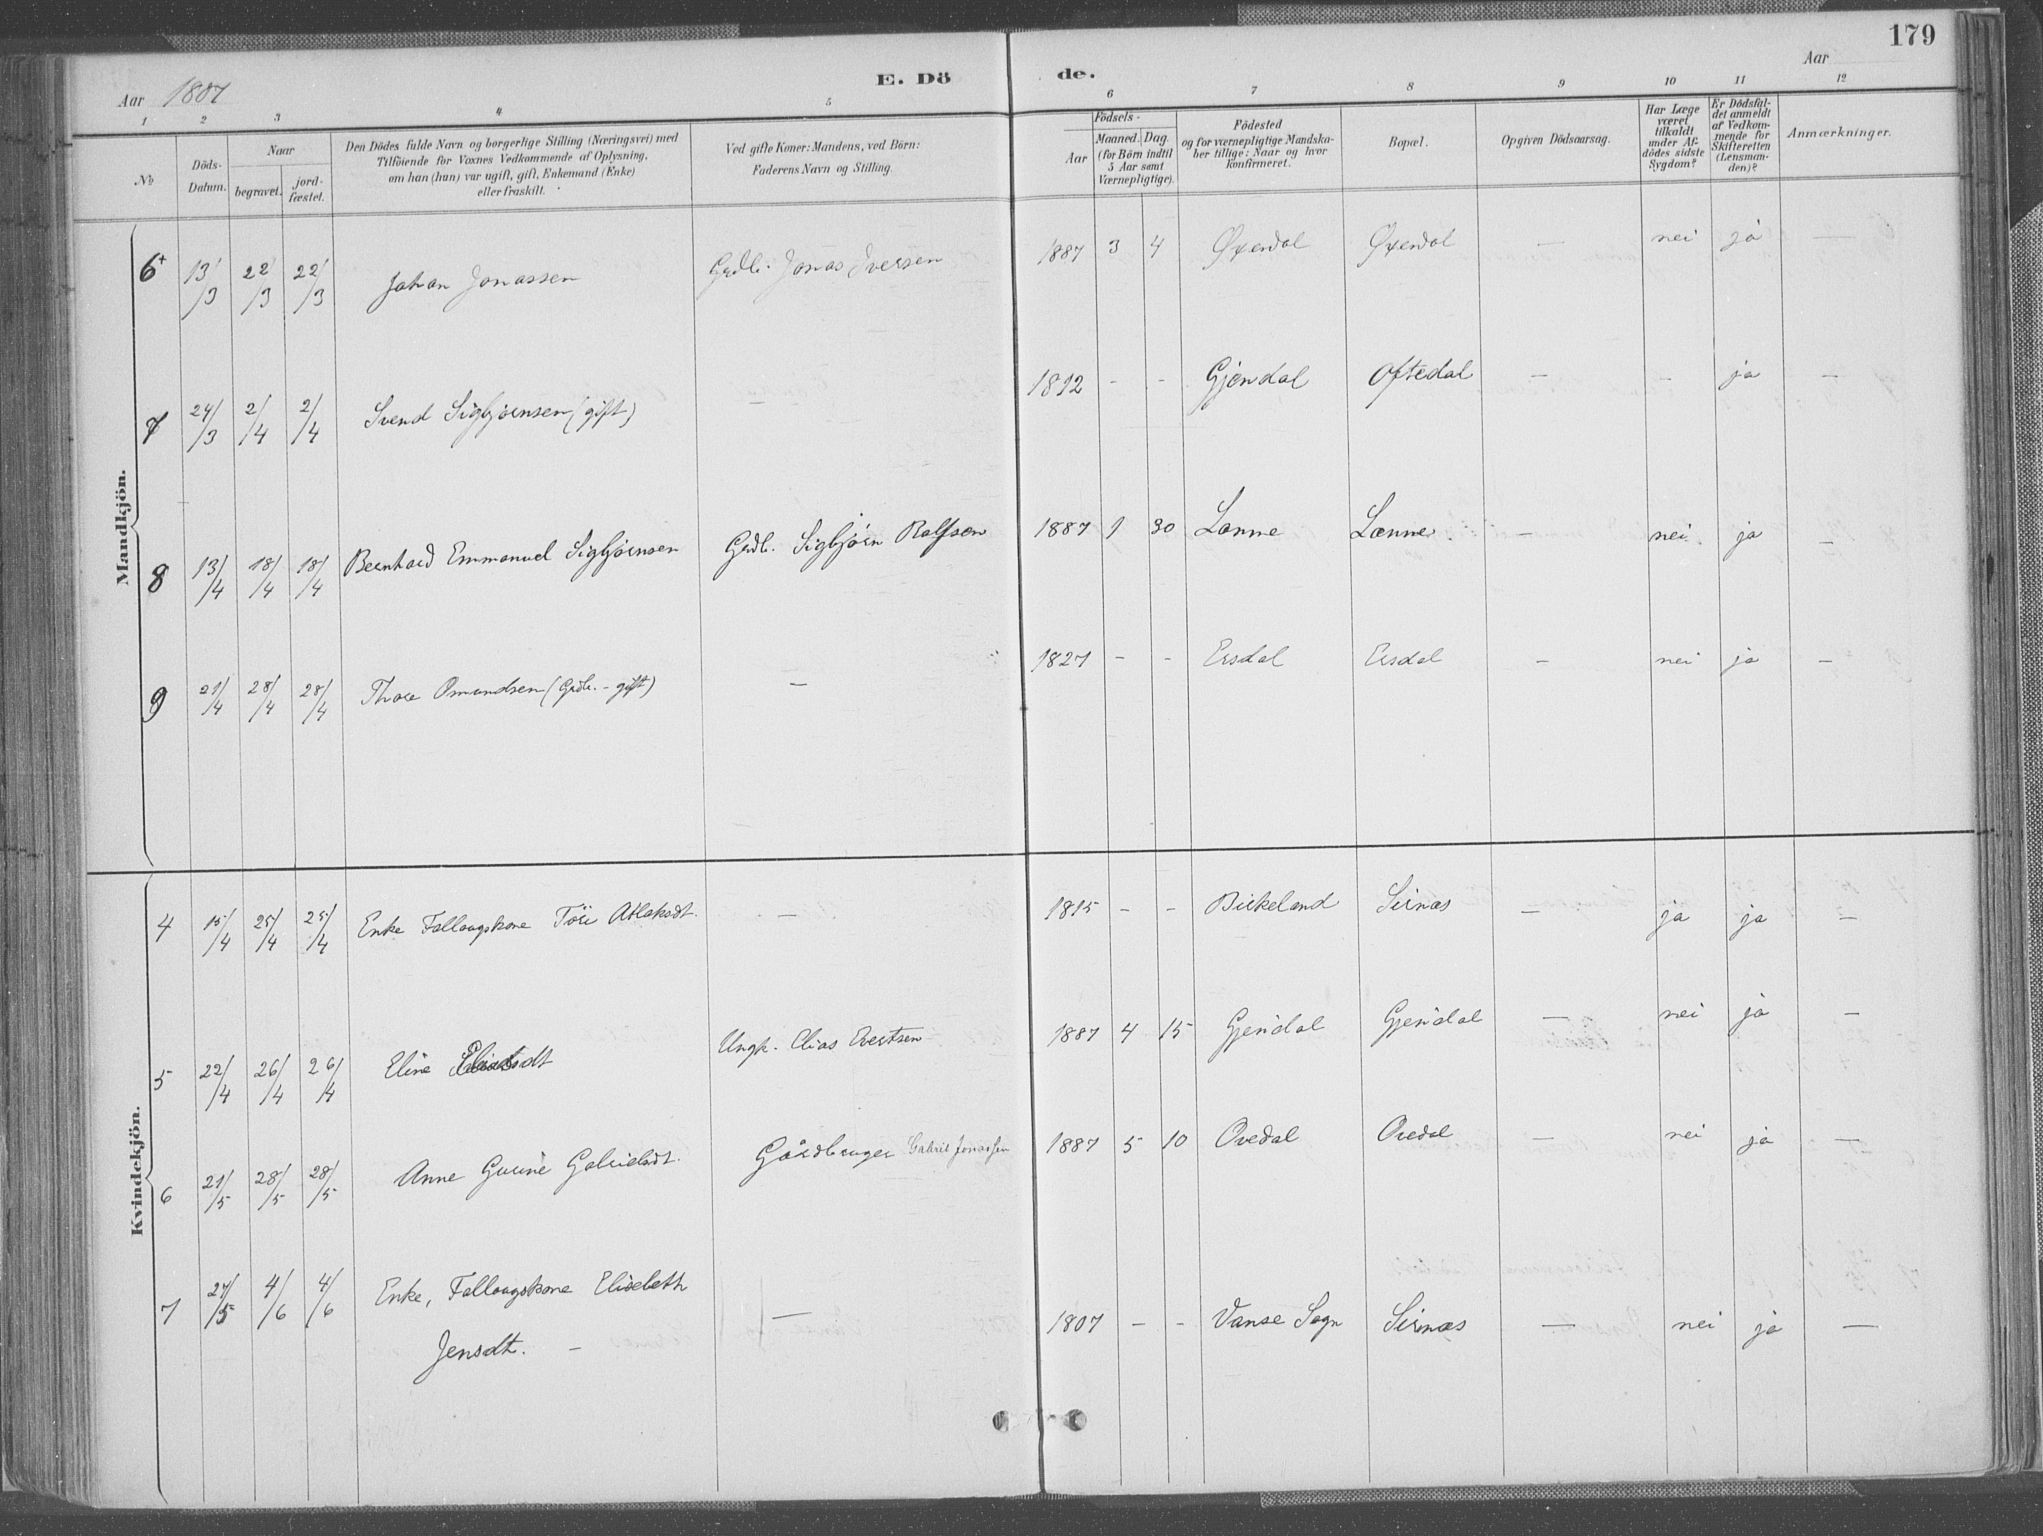 179
Aar 1887
E. Dö
de.
Aar
1 2 3 4 5 6 7 8 9 10 11 12
No
Döds-
Datum.
Naar
begravet.
jord-
fæstet.
Den Dödes fulde Navn og borgerlige Stilling (Næringsvei) med
Tilföiende for Voxnes Vedkommende af Oplysning,
om han (hun) var ugift, gift, Enkemand (Enke)
eller fraskilt.
Ved gifte Koner: Mandens, ved Börn:
Faderens Navn og Stilling.
Födsels-
Aar
Maaned. Dag.
(for Börn indtil
5 Aar samt
Værnepligtige).
Födested
og for værnepligtige Mandska-
ber tillige: Naar og hvor
konfirmeret.
Bopæl.
Opgiven Dödsaarsag.
Har Læge
været
tilkaldt
under Af-
dödes sidste
Sygdom?
Er Dödsfal-
det anmeldt
af Vedkom-
mende for
Skifteretten
(Lensman-
den)?
Anmærkninger.
Mandkjön.
6+ 13/3 22/3 22/3 Johan Jonassen Grdb. Jonas Iversen 1887 3 4 Øxendal Øxendal — nei ja —
7 24/3 2/4 2/4 Svend Sigbjørnsen (gift) — 1812 - - Gjendal Oftedal — - ja —
8 13/4 18/4 18/4 Bernhard Emmanuel Sigbjørnsen Grdb. Sigbjørn Rolfsen 1887 1 30 Lønne Lønne. — nei. ja —
9 21/4 28/4 28/4 Thore Omundsen (Grdb. - gift) — 1827 - - Ersdal Ersdal — nei ja —
Kvindekjön.
4 15/4 25/4 25/4 Enke Føllaugskone Töri Atlaksdt. — 1815 - - Birkeland Sirnæs — ja ja —
5 22/4 26/4 26/4 Eline Eliasdt Ungk. Elias Evertsen 1887 4 15 Gjendal Gjendal — nei ja —
6 21/5 28/5 28/5 Anne Gurine Gabrielsdt. Gårdbruger Gabriel Jonassen 1887 5 10 Ovedal Ovedal — nei ja —
7 27/5 4/6 4/6 Enke, Føllaugskone Elisebeth — 1807 - - Vanse Sogn Sirnæs — nei ja —
Jensdt. -